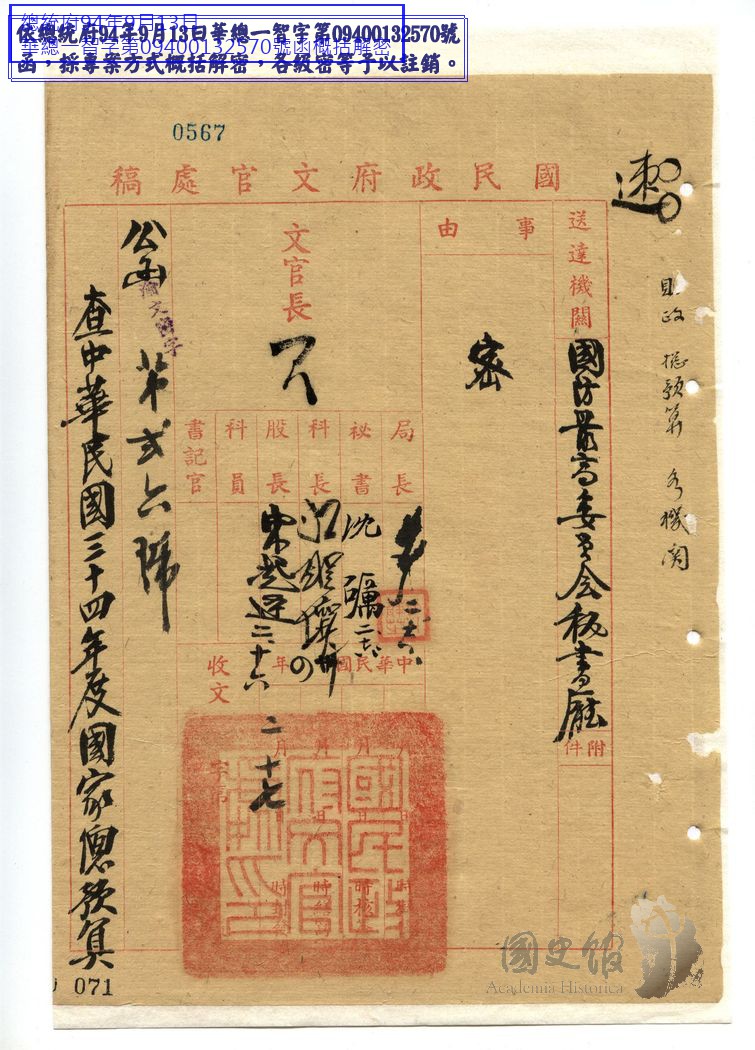 總統府94年9月13日
華總一智字第09400132570號函概括解密
依總統府94年9月13日華總一智字第09400132570號
函，採專案方式概括解密，各級密等予以註銷。
0567
國民政府文官處稿
速
財政 總預算 各機關
送達機關
國防最高委員會秘書廳
附件
事由
密
文官長
局長
秘書
科長
股長
科員
書記官
沈礪
二 十六
二 十七
中華民國 年
收文
字 號
月 月 月 月
日 日 日
時 時 時核 時
國民政府文官處印
公函
渝文 字
第弍六號
查中華民國三十四年度國家總預算
071
國史館
Academia Historica